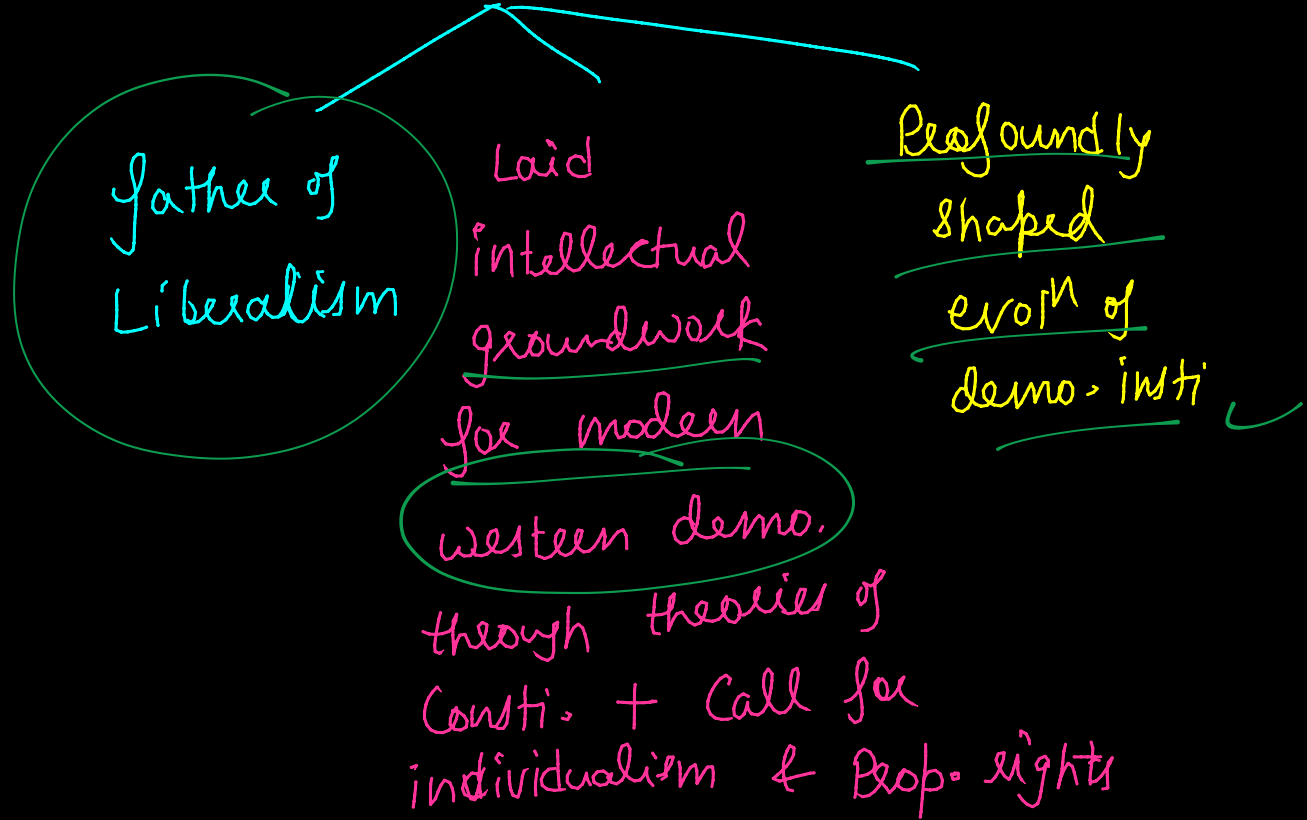 father of
Liberalism
Laid
intellectual
groundwork
for modern
western demo.
through theories of
Consti. + Call for
individualism & Prop. rights
Profoundly
shaped
evolⁿ of
demo. insti